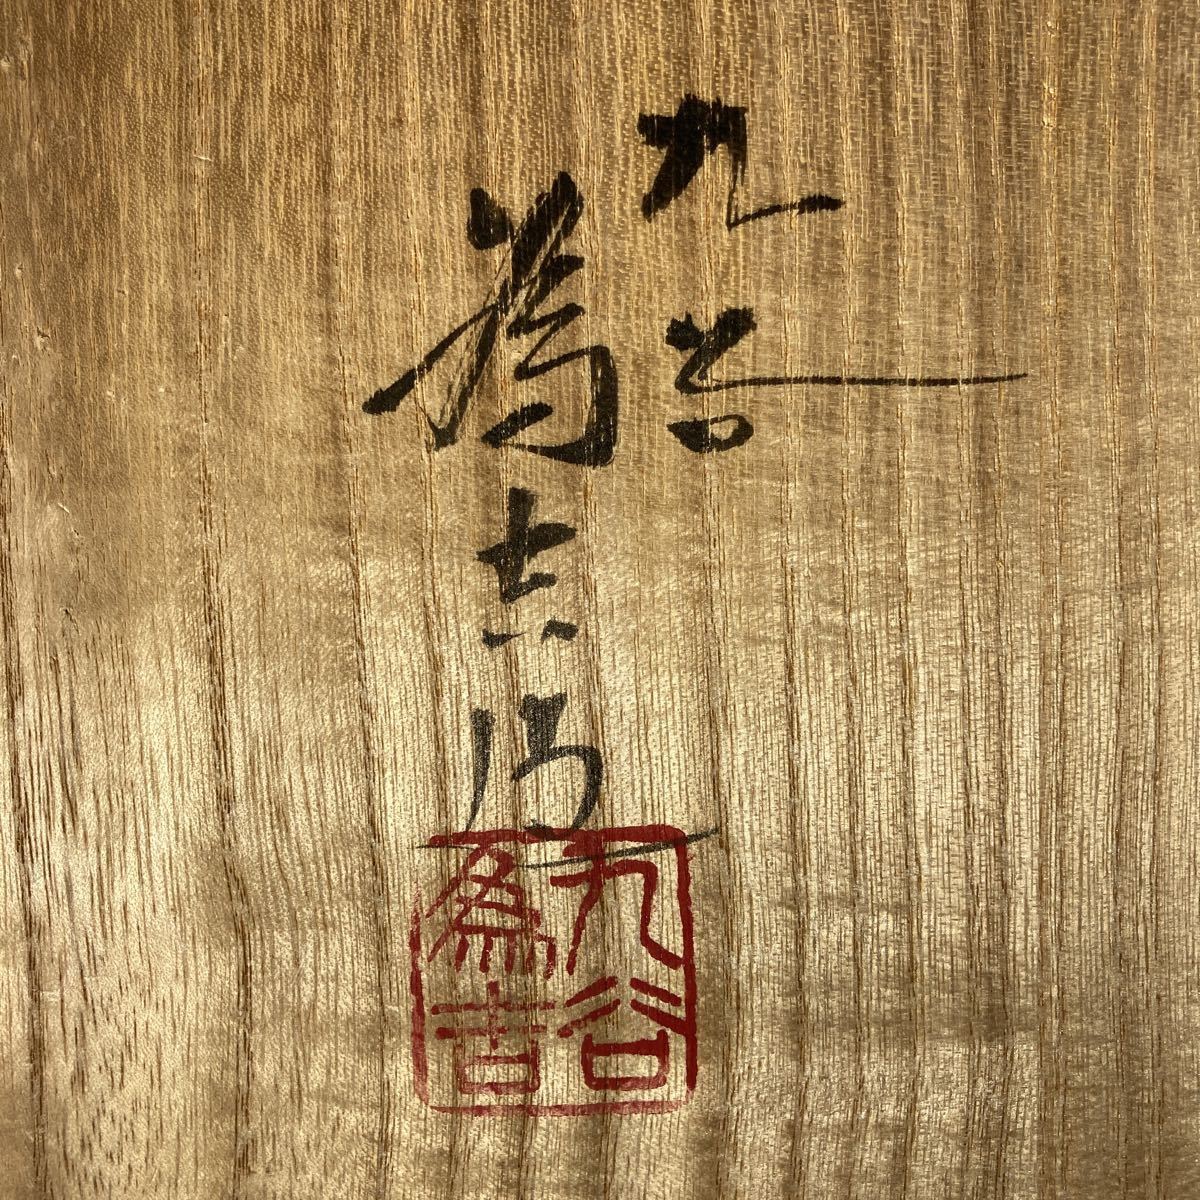 九谷
為吉
九谷
為吉